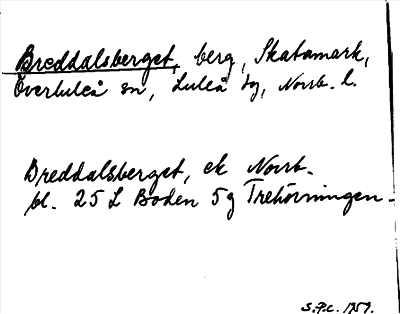 Breddalsberget, berg, Skatamark,
Överluleå sn, Luleå tg, Norrb. l.
Breddalsberget, ek Norrb.
bl. 25 L Boden 5g Trehörningen.
S.P.C. 1959.